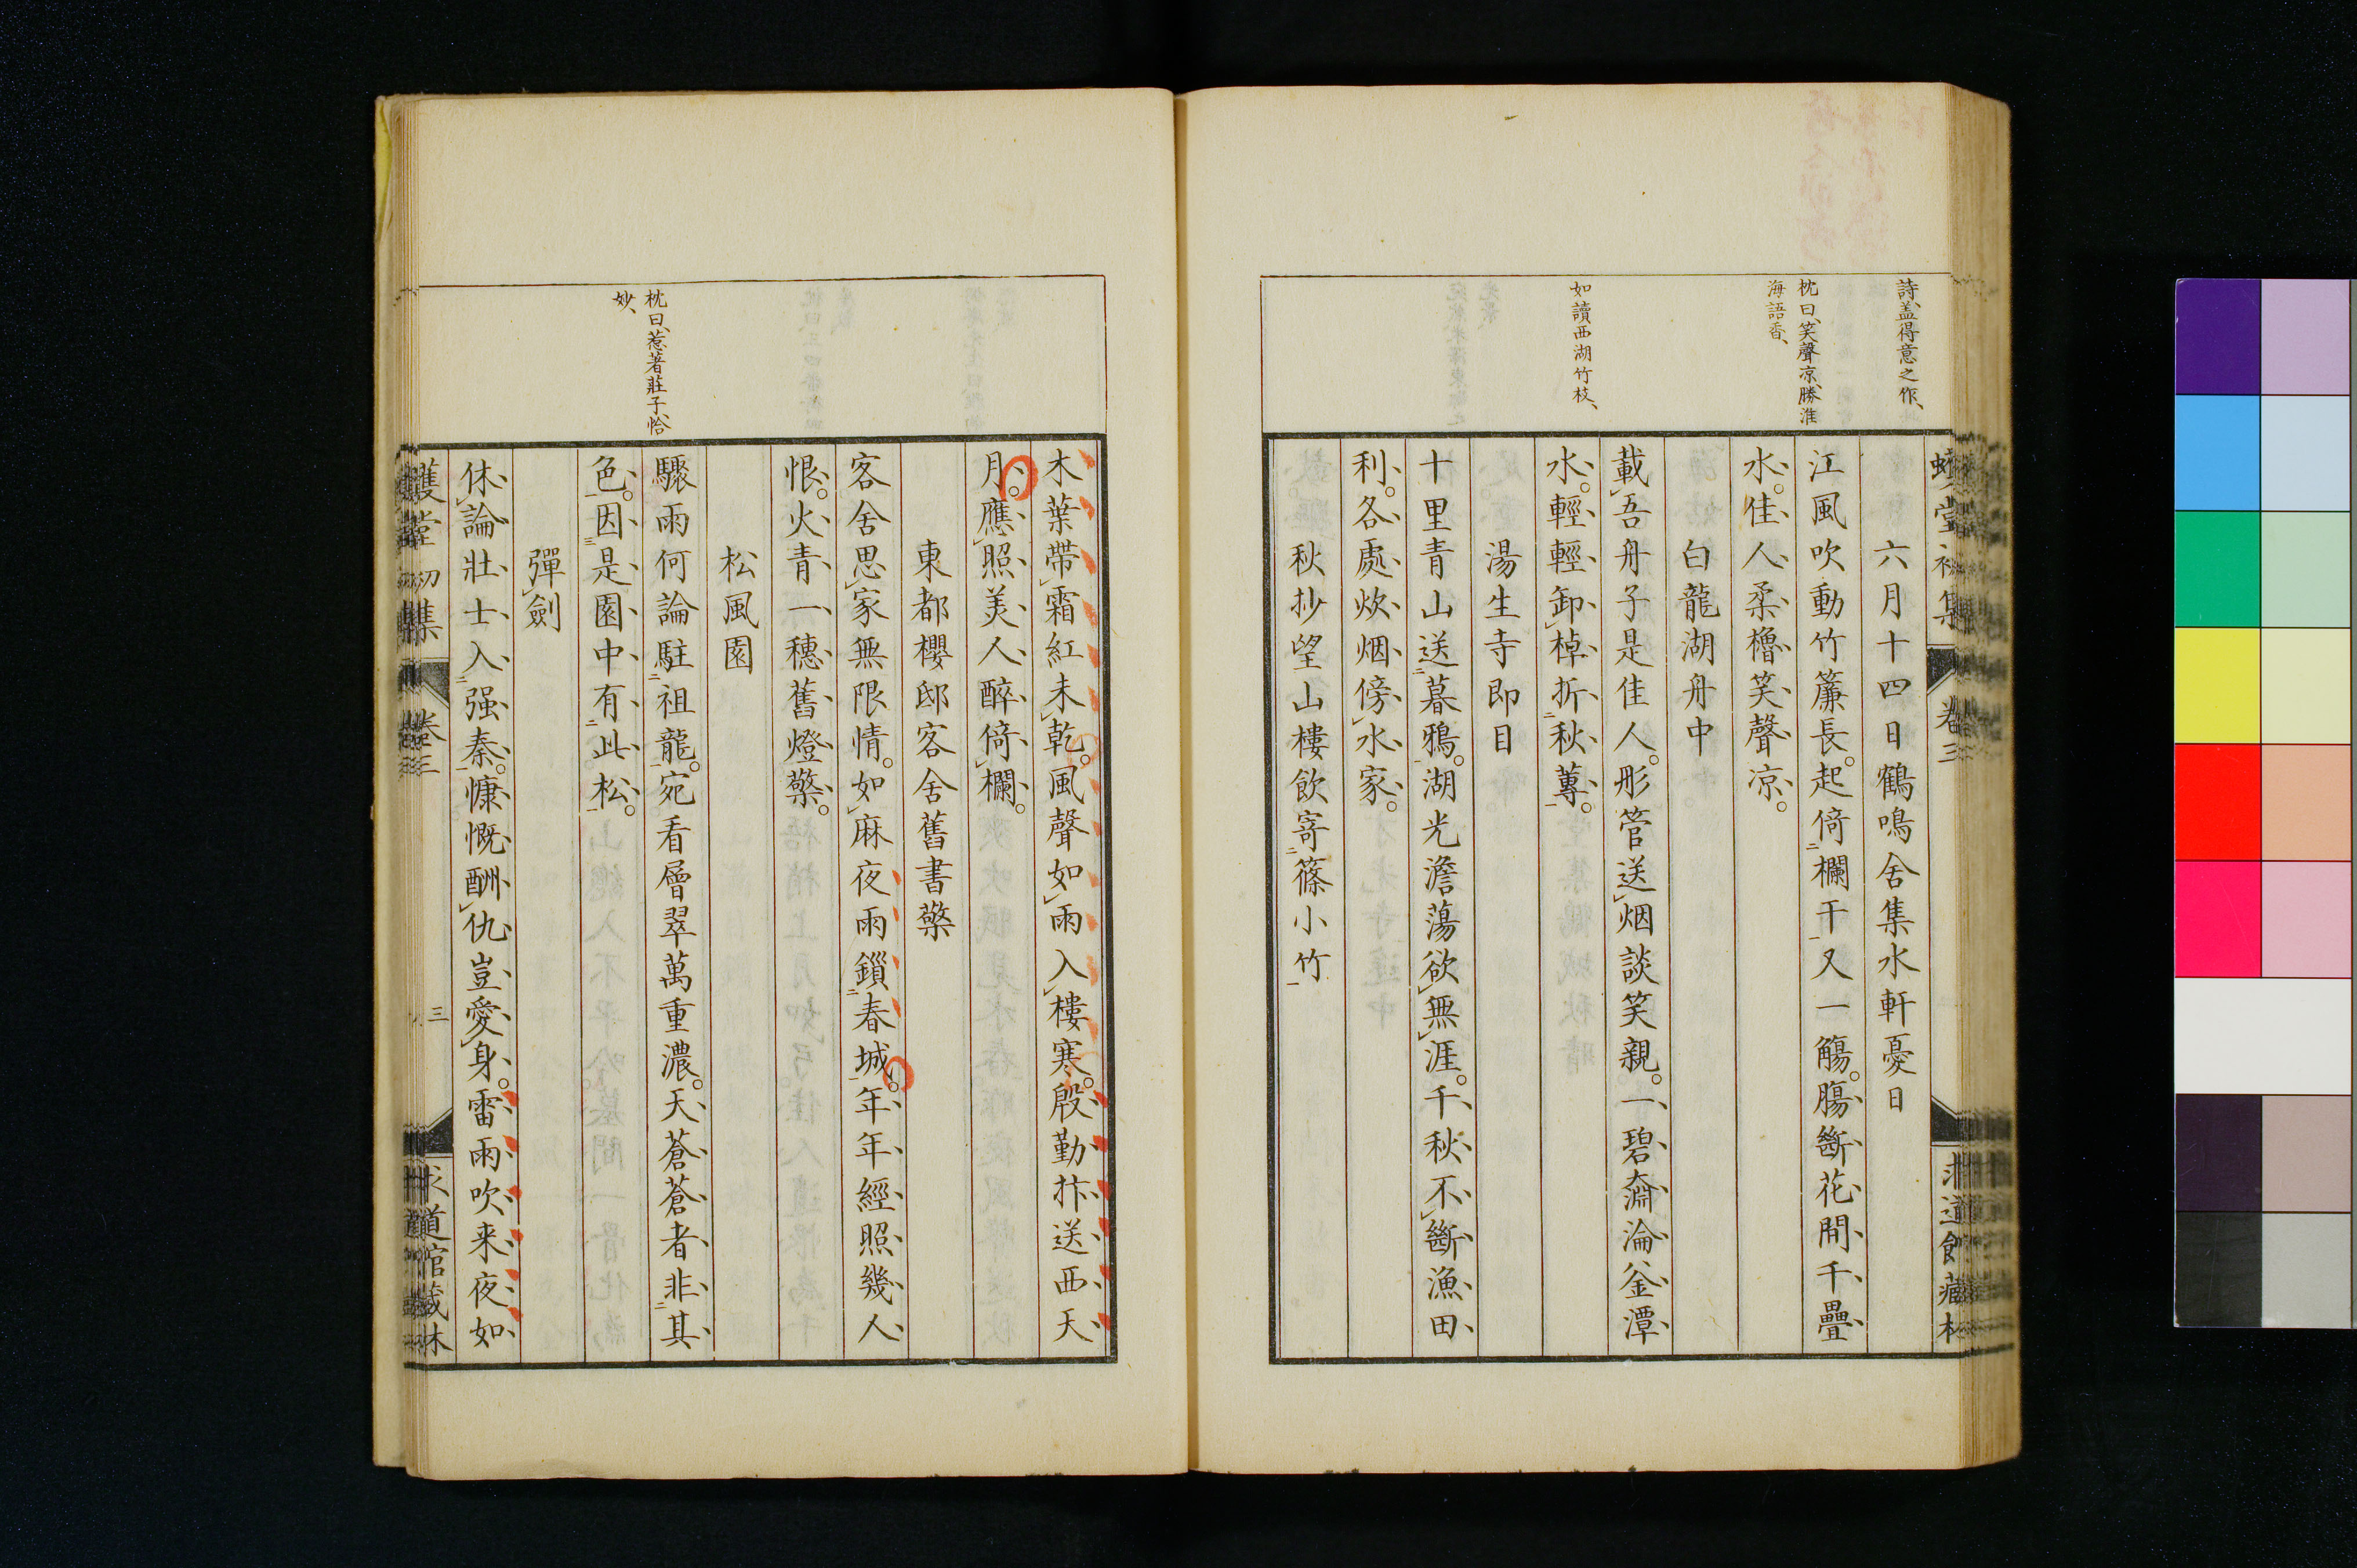 詩、盖得意之作、
枕曰、笑聲凉、勝淮
海語香、
如讀西湖竹枝、
堂初集 卷三 求道館藏
六月十四日鶴鳴舍集水軒憂日
江風吹動竹簾長。起倚二欄干一又一觴。腸斷花間千疊
水。佳人柔櫓笑聲凉。
白龍湖舟中
載吾舟子是佳人。彤管送烟談笑親。一碧奫淪釜潭
水。輕輕卸棹折二秋蓴一。
湯生寺即目
十里青山送二暮鴉一。湖光澹蕩欲無涯。千秋不斷漁田
利。各處炊烟傍水家。
秋抄望山樓飲寄二篠小竹一
枕曰、惹著莊子、恰
妙、
木葉帶霜紅未乾。風聲如雨入樓寒。殷勤拤送西天
月。應照美人醉倚欄。
東都櫻邸客舍舊書檠
客舍思家無限情。如麻夜雨鎻二春城一。年年經照幾人
恨。火青一穗舊燈檠。
松風園
驟雨何論駐二祖龍一。宛看層翠萬重濃。天蒼蒼者非二其
色一。因三是園中有二此松一。
彈劍
休論壯士入二强秦一。慷慨酬仇豈愛身。雷雨吹来夜如
堂初集 卷三 三 道館藏